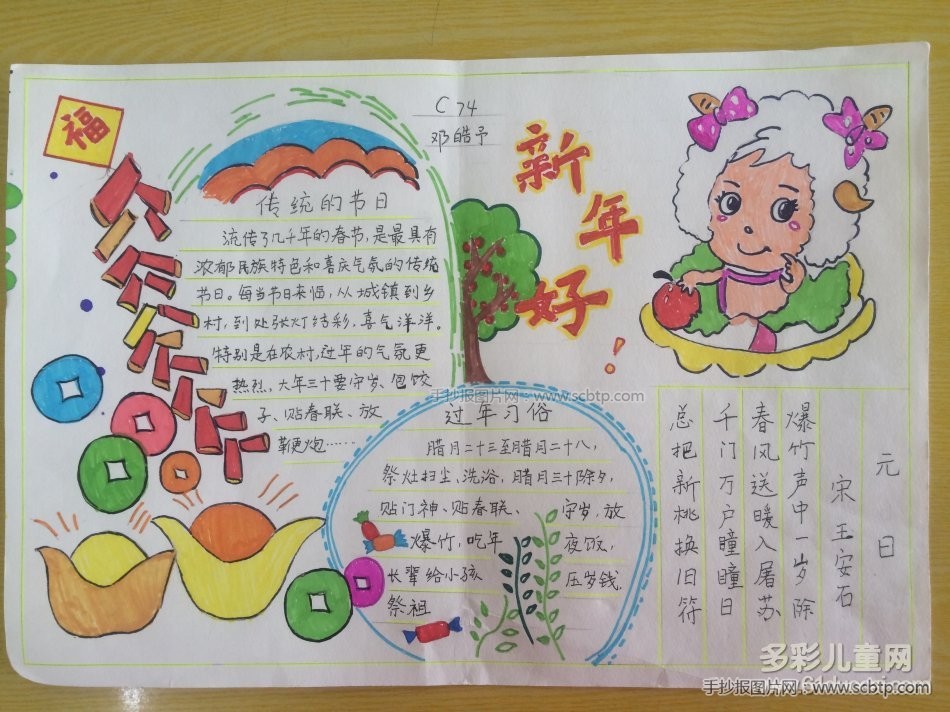 福
C74
邓皓予
新年好!
传统的节日
流传了几千年的春节,是最具有
浓郁民族特色和喜庆气氛的传统
节日。每当节日来临,从城镇到乡
村,到处张灯结彩,喜气洋洋。
特别是在农村,过年的气氛更
热烈、大年三十要守岁、包饺
子、贴春联、放
鞭炮……
手抄报图片网 · www.scbtp.com
过年习俗
腊月二十三至腊月二十八,
祭灶扫尘、洗浴,腊月三十除夕,
贴门神、贴春联、 守岁,放
爆竹,吃年 夜饭,
长辈给小孩 压岁钱,
祭祖
元日
宋 王安石
爆竹声中一岁除
春风送暖入屠苏
千门万户瞳瞳日
总把新桃换旧符
多彩儿童网
手抄报图片网 · www.scbtp.com